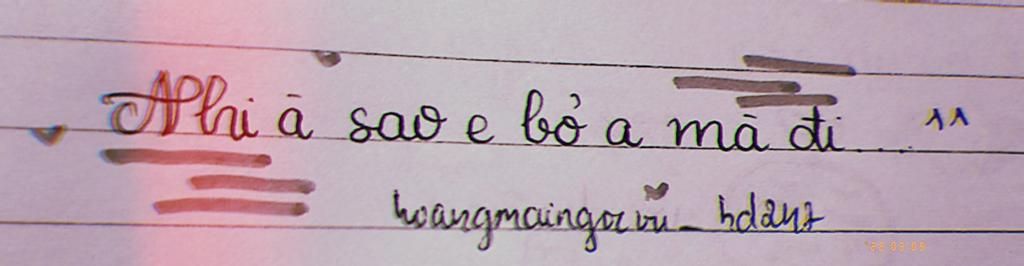 Nhi à sao e bỏ a mà đi.... ^^
hoangmaingocvu_hd2k7
22 09 09